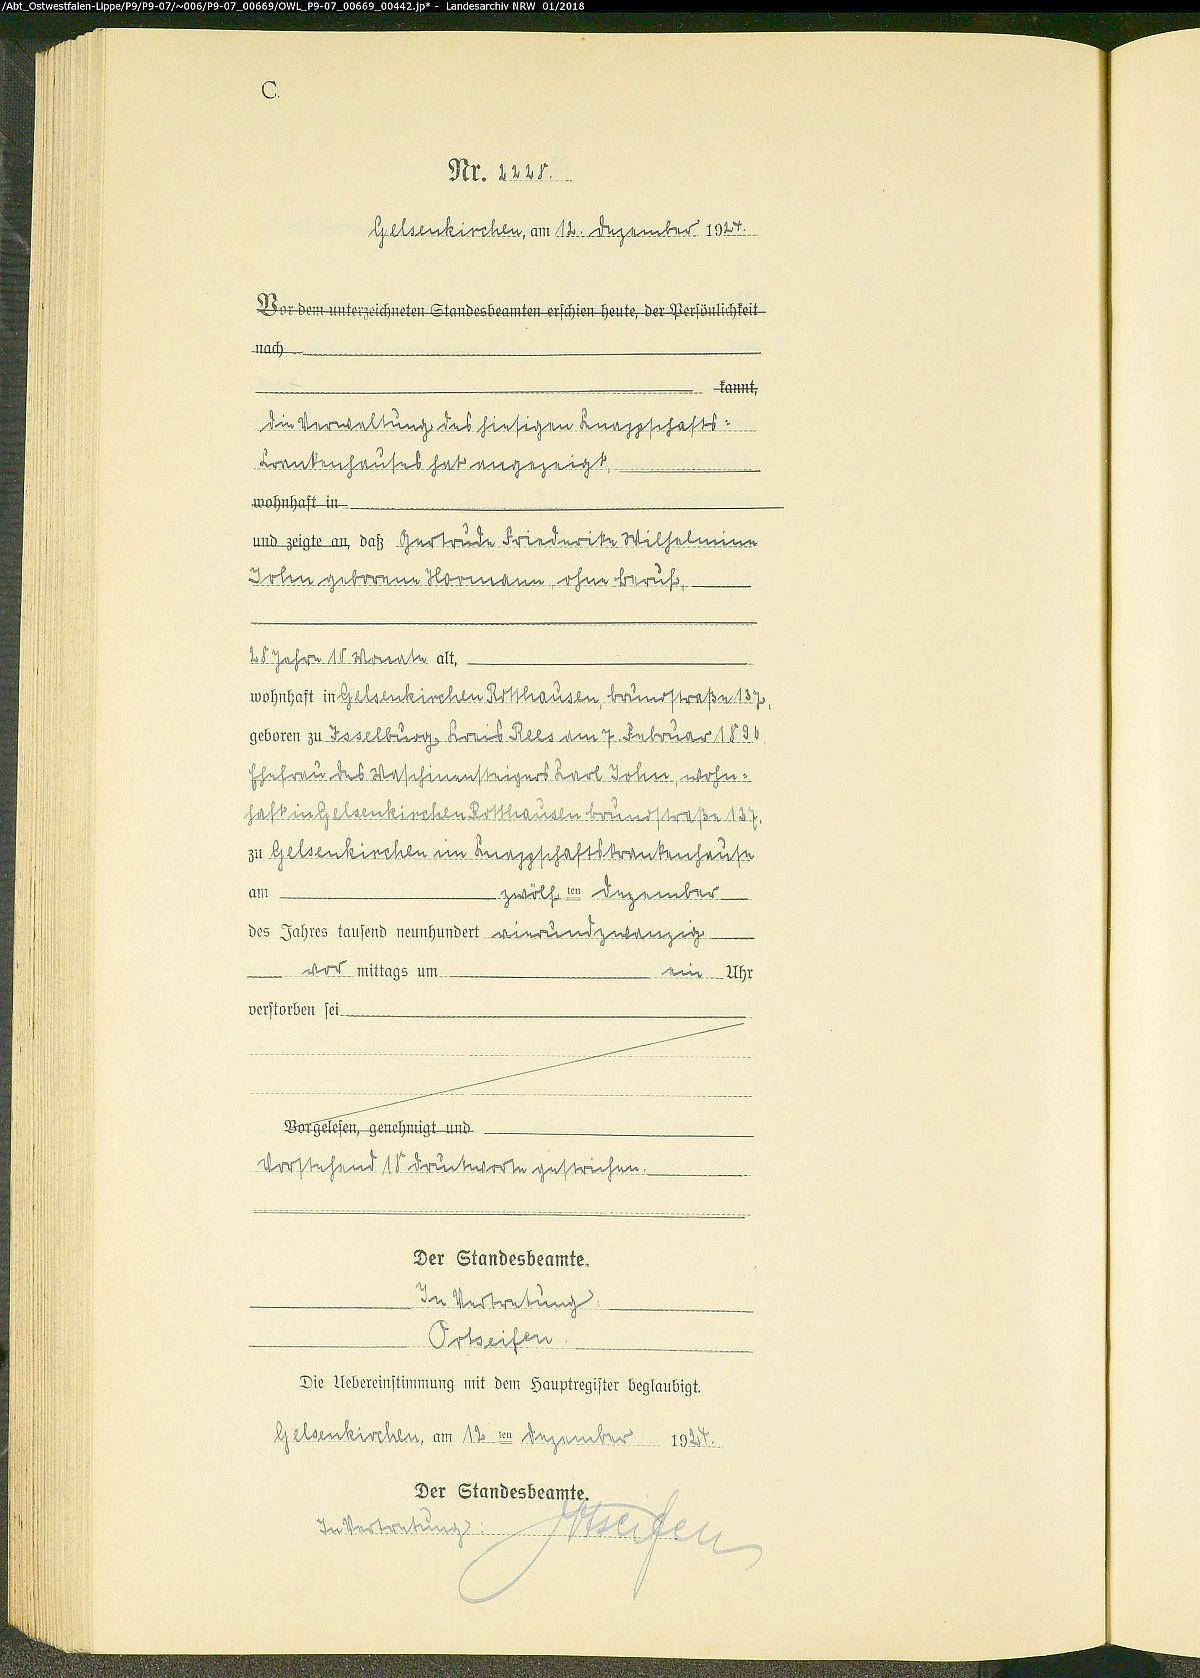 /Abt_Ostwestfalen-Lippe/P9/P9-07/~006/P9-07_00669/OWL_P9-07_00669_00442.jp* - Landesarchiv NRW 01/2018
C.
Nr. 2228.
Gelsenkirchen, am 12. Dezember 1924.
Vor dem unterzeichneten Standesbeamten erschien heute, der Persönlichkeit
nach
kannt,
die Verwaltung des hiesigen Knappschafts-
krankenhauses hat angezeigt,
wohnhaft in
und zeigte an, daß Gertrude Friederike Wilhelmine
John geborene Hormann, ohne Beruf,
28 Jahre 10 Monate alt,
wohnhaft in Gelsenkirchen Rotthausen, Brundstraße 137,
geboren zu Isselburg, Kreis Rees am 7. Februar 1896
Ehefrau des Maschinensteigers Karl John, wohn-
haft in Gelsenkirchen Rotthausen Brundstraße 137.
zu Gelsenkirchen im Knappschaftskrankenhause
am zwölf ten Dezember
des Jahres tausend neunhundert vierundzwanzig
vor mittags um ein Uhr
verstorben sei
Vorgelesen, genehmigt und
Vorstehend 18 Druckworte gestrichen.
Der Standesbeamte.
In Vertretung:
Ortseifen.
Die Uebereinstimmung mit dem Hauptregister beglaubigt.
Gelsenkirchen, am 12 ten Dezember 1924.
Der Standesbeamte.
In Vertretung: Ortseifen